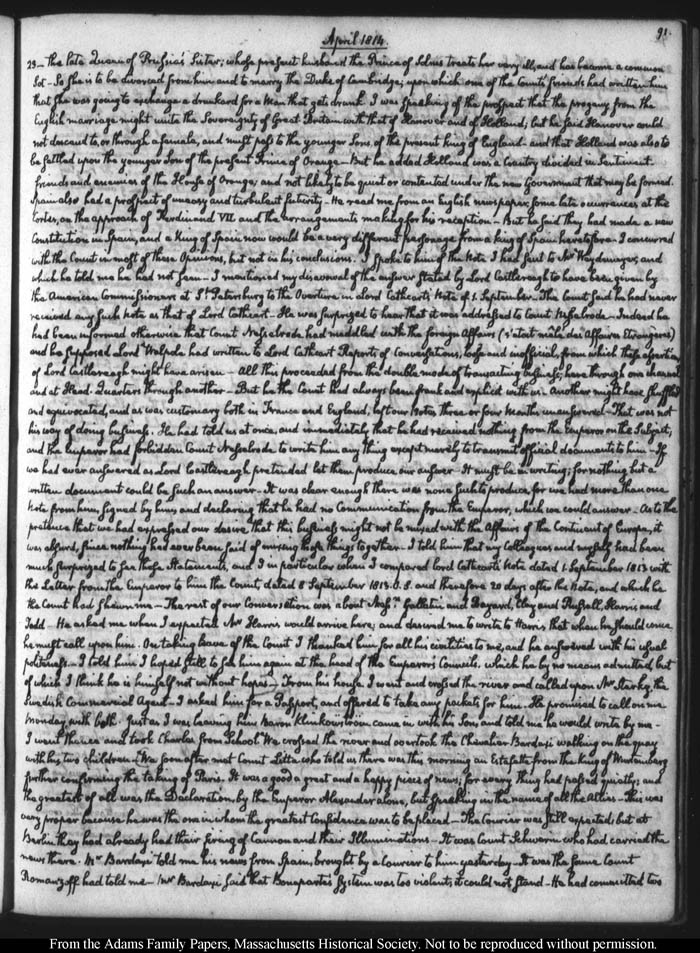 91.
April 1814.
23— the late Queen of Prussia's Sister; whose present husband the Prince of Solms treats her very ill, and has become a common
Sot— So she is to be divorced from him and to marry the Duke of Cambridge; upon which one of the Counts friends had written him
that she was going to exchange a drunkard for a Man that gets drunk. I was speaking of the prospect that the progeny from the
English marriage might unite the Sovereignty of Great-Britain with that of Hanover and of Holland; but he said Hanover could
not descend to, or through a female, and must pass to the younger Sons, of the present king of England— and that Holland was also to
be settled upon the younger Son of the present Prince of Orange— But he added Holland was a Country divided in Sentiment.
friends and enemies of the House of Orange, and not likely to be quiet or contented under the new Government that may be formed.
Spain also had a prospect of uneasy and turbulent futurity— He read me from an English newspaper, some late occurrences at the
Cortes, on the approach of Ferdinand VII and the arrangements making for his reception— But he said they had made a new
Constitution in Spain, and a King of Spain now would be a very different personage from a king of Spain heretofore— I concurred
with the Count in most of these Opinions, but not in his conclusions. I spoke to him of the Note I had sent to Mr Weydmeyer, and
which he told me he had not seen— I mentioned my disavowal of the answer stated by Lord Castlereagh to have been given by
the American Commissioners at St. Petersburg to the Overture in Lord Cathcart's Note of 1. September— The Count said he had never
received any such Note as that of Lord Cathcart— He was surprized to hear that it was addressed to Count Nesselrode— Indeed he
had been informed otherwise that Count Nesselrode had meddled with the foreign Affairs (s'etait mêlé des Affaires Etrangeres)
and he supposed Lord Walpole had written to Lord Cathcart Reports of Conversations, loose and inofficial, from which these assertions
of Lord Castlereagh might have arisen— All this proceeded from the double mode of transacting business; here through one channel
and at Head-Quarters through another— But he the Count had always been frank and explicit with us— Another might have shuffled
and equivocated, and as was customary both in France and England, left our Notes three or four Months unanswered— That was not
his way of doing business. He had told us at once, and immediately that he had received nothing from the Emperor on the Subject,
and the Emperor had forbidden Count Nesselrode to write him any thing except merely to transmit official documents to him— If
we had ever answered as Lord Castlereagh pretended let them produce our answer— It must be in writing; for nothing but a
written document could be such an answer— It was clear enough there was none such to produce, for we had more than one
Note from him, signed by him, and declaring that he had no Communication from the Emperor, which we could answer— As to the
pretence that we had expressed our desire that this business might not be mixed with the Affairs of the Continent of Europe, it
was absurd, since nothing had ever been said of mixing those things together— I told him that my Colleagues and myself had been
much surprized to see these Statements, and I in particular when I compared Lord Cathcart's Note dated 1. September 1813 with
the Letter from the Emperor to him the Count, dated 8 September 1813. O.S. and therefore 20 days after the Note, and which he
the Count had shewn me— The rest of our Conversation was about Messrs. Gallatin and Bayard, Clay and Russell, Harris, and
Todd— He asked me when I expected Mr Harris would arrive here, and desired me to write to Harris, that when he should come
he must call upon him. On taking leave of the Count I thanked him for all his civilities to me, and he answered with his usual
politeness— I told him I hoped still to see him again at the head of the Emperor's Councils, which he by no means admitted, but
of which I think he is himself not without hopes— From his house I went and crossed the river and called upon Mr Sterky, the
Swedish Commercial Agent— I asked him for a Passport, and offered to take any packet for him— He promised to call on me
Monday with both— Just as I was leaving him Baron Klinkowstrom came in with his Son, and told me he would write by me—
I went thence and took Charles from School— We crossed the river and overtook the Chevalier Bardaxi walking on the quay
with his two children— We soon after met Count Litta who told us there was this morning an Estafette from the king of Wurtemberg
further confirming the taking of Paris. It was a good a great and a happy piece of news; for every thing had passed quietly; and
the greatest of all was the Declaration, by the Emperor Alexander alone, but speaking in the name of all the Allies— This was
very proper because he was the one in whom the greatest Confidence was to be placed— The Courier was still expected; but at
Berlin they had already had their firing of Cannon and their Illuminations— It was Count Schwerin who had carried the
news there. Mr Bardaxi told me his news from Spain, brought by a Courier to him yesterday— It was the same Count
Romanzoff had told me— Mr Bardaxi said that Bonaparte's System was too violent; it could not stand— He had committed two
From the Adams Family Papers, Massachusetts Historical Society. Not to be reproduced without permission.